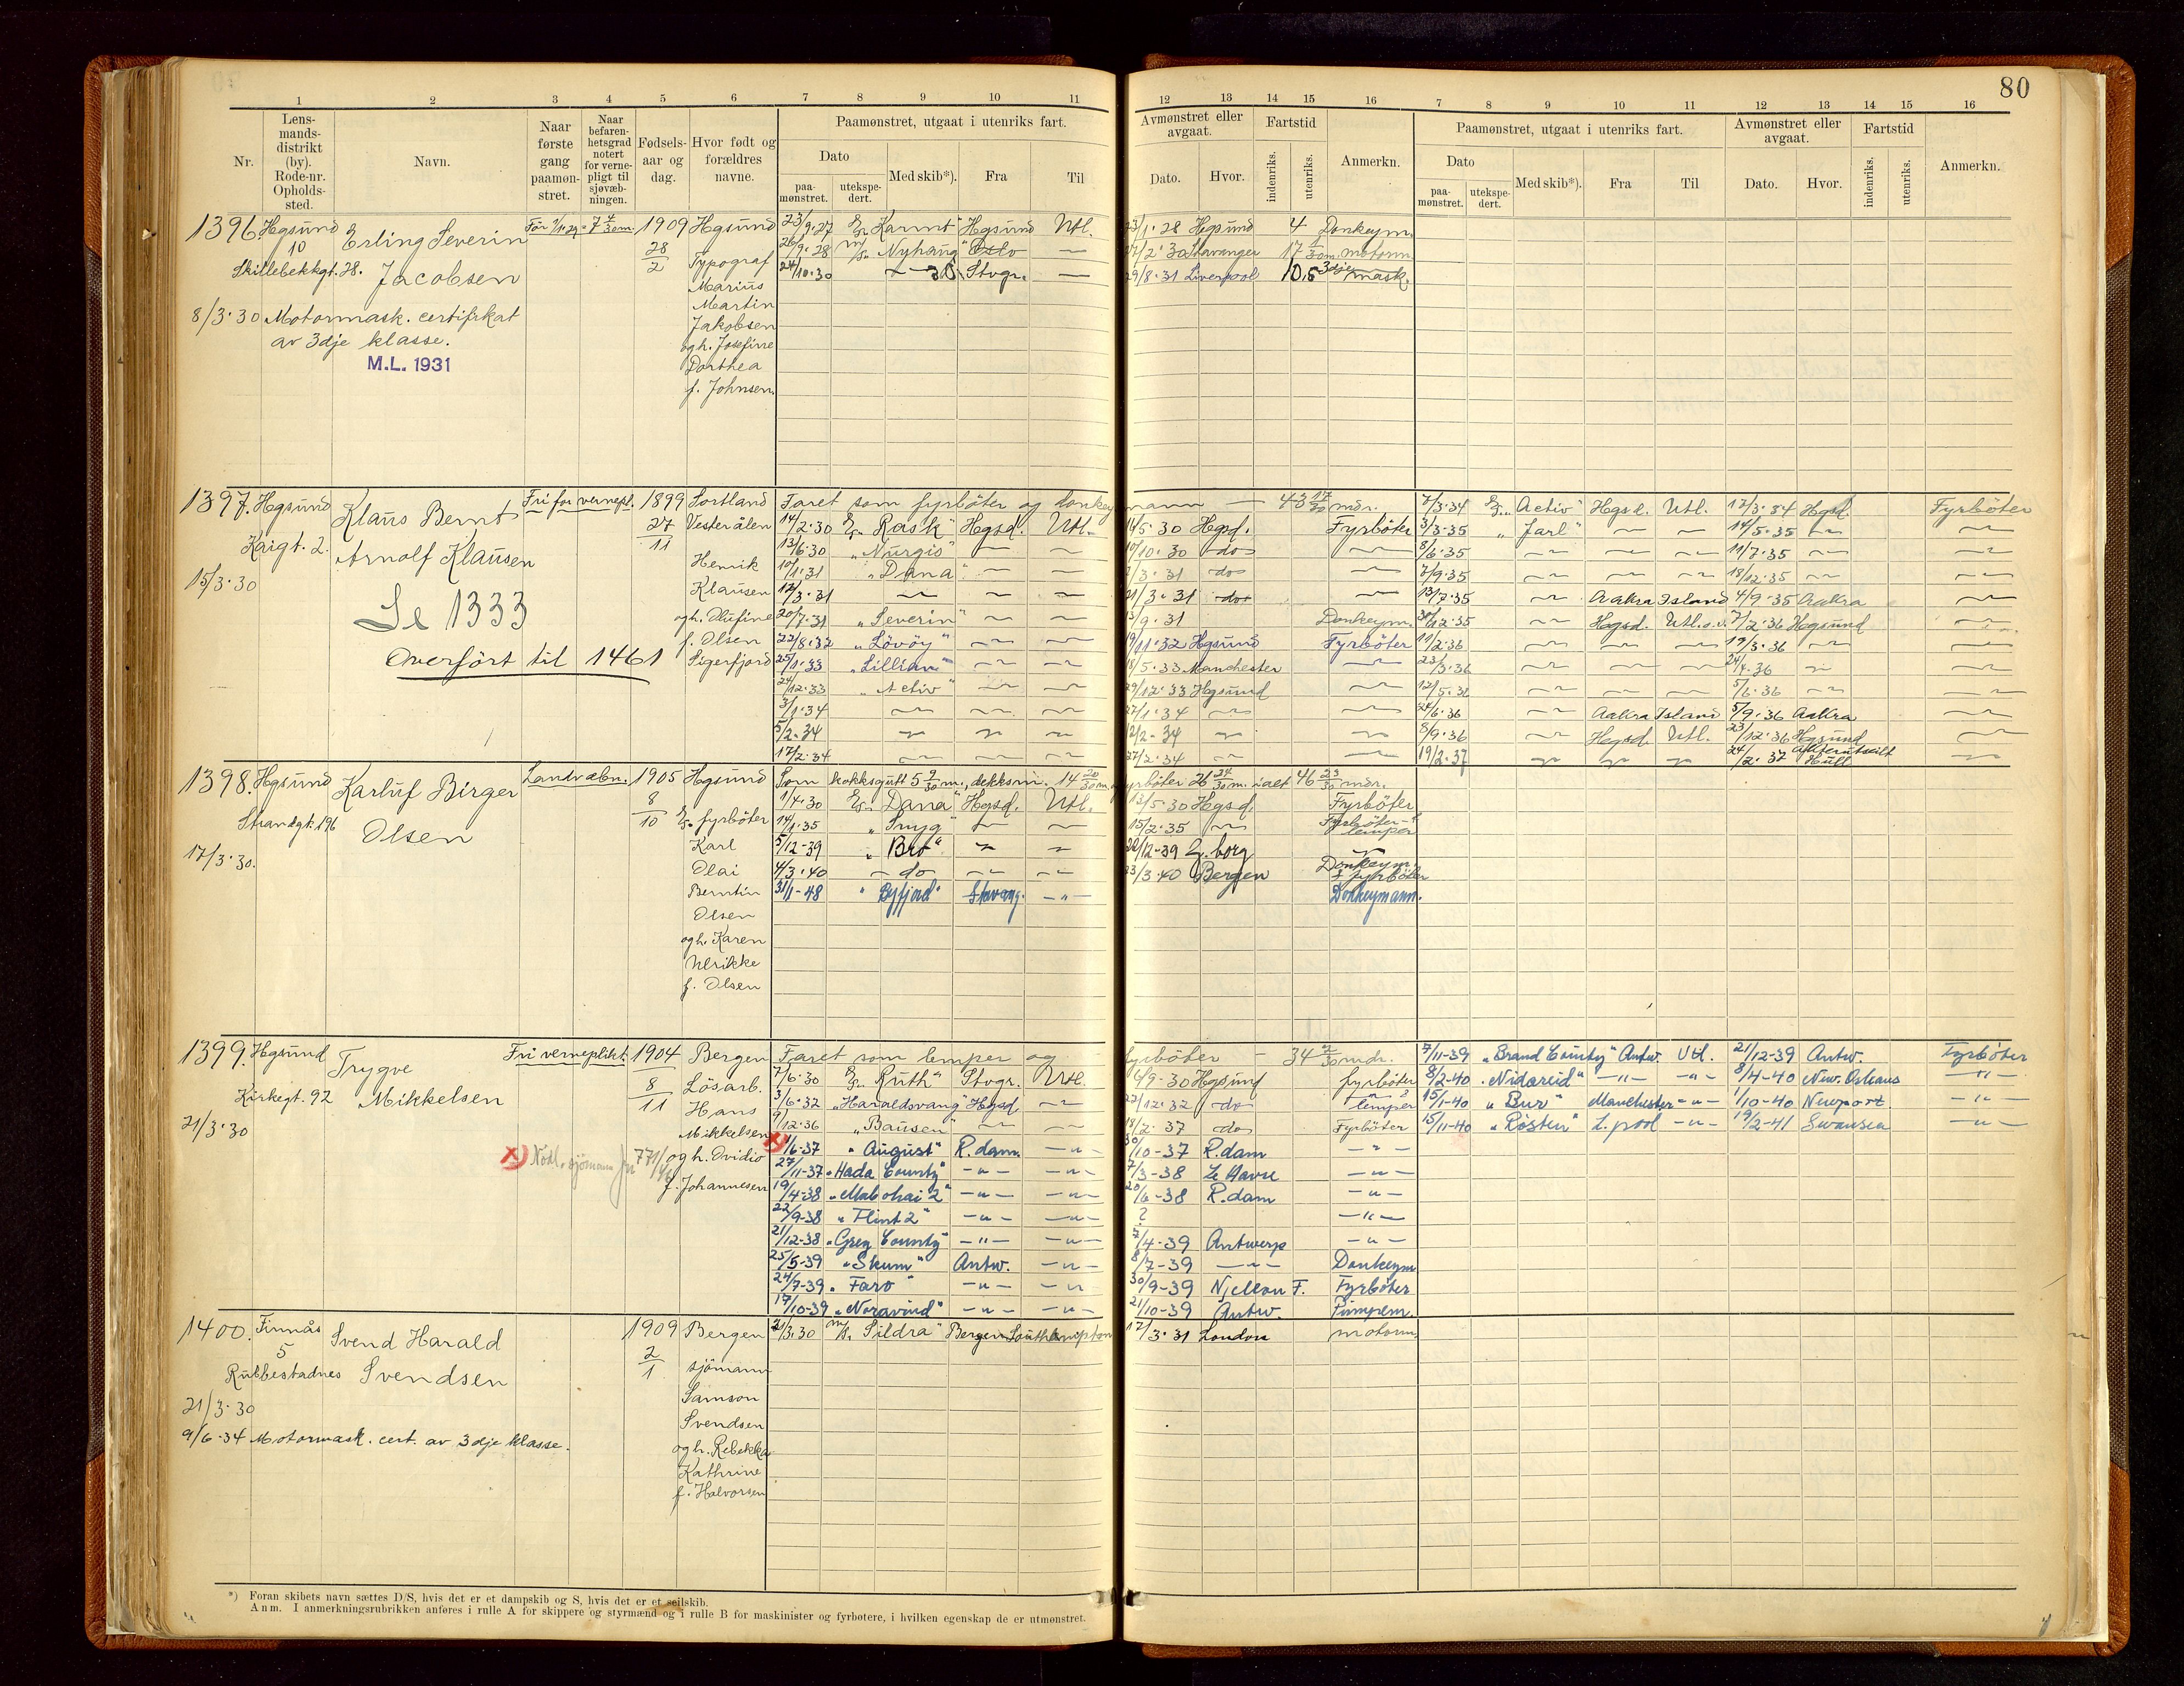 80
1 2 3 4 5 6 7 8 9 10 11 12 13 14 15 16 7 8 9 10 11 12 13 14 15 16
Nr.
Lens-
mands-
distrikt
(by).
Rode-nr.
Opholds-
sted.
Navn.
Naar
første
gang
paamøn-
stret.
Naar
befaren-
hetsgrad
notert
for verne-
pligt til
sjøvæb-
ningen.
Fødsels-
aar og
dag.
Hvor født og
forældres
navne.
Paamønstret, utgaat i utenriks fart.
Dato
paa-
mønstret.
utekspe-
dert.
Med skib*).
Fra
Til
Avmønstret eller
avgaat.
Dato.
Hvor.
Fartstid
indenriks.
utenriks.
Anmerkn.
Paamønstret, utgaat i utenriks fart.
Dato
paa-
mønstret.
utekspe-
dert.
Med skib*).
Fra
Til
Avmønstret eller
avgaat.
Dato.
Hvor.
Fartstid
indenriks.
utenriks.
Anmerkn.
1396. Hgsund
10
Skillebekkgt. 28.
Erling Severin
Jacobsen
8/3·30 Motormask. certifikat
av 3dje klasse.
M.L. 1931
1909
28/2
Hgsund
Typograf
Marius
Martin
Jakobsen
og h. Josefine
Dorthea
f. Johnsen.
23/9·27 "Karmt" Hgsund Utl. 23/1·28 Hgsund 4 Donkeym.
26/9·28 "Nyhaug" Oslo — 27/2·30 Stavanger 17 motorm.
24/10·30 Stvgr. — 29/8·31 Liverpool 10,5 3dje mask.
1397. Hgsund
Kaigt. 2.
15/3·30
Klaus Bernt
Arnolf Klausen
Se 1333
Overført til 1461
Fri for vernepl.
1899
27/11
Sortland
Vesterålen
Henrik
Klausen
og h. Olufine
f. Olsen
Sigerfjord
Faret som fyrböter og donkeymann — 43 17/30 mdr.
14/2·30 "Rask" Hgsd. Utl. 14/5·30 Hgsd. Fyrböter
13/6·30 "Nurgis" — — 10/10·30 do —
10/1·31 "Dana" — — /3·31 do —
12/3·31 — — — 21/3·31 do —
20/7·31 "Severin" — — /9·31 Donkeym.
22/8·32 "Lövöy" — — 19/11·32 Hgsund Fyrböter
25/1·33 "Lillian" — — 18/5·33 Manchester —
24/12·33 "Activ" — — 29/12·33 Hgsund —
3/1·34 — — — 27/1·34 — —
5/2·34 — — — 12/2·34 — —
17/2·34 — — — 27/2·34 — —
7/3·34 "Activ" Hgsd. Utl. 17/3·34 Hgsd. Fyrböter
3/3·35 "Jarl" — — 14/5·35 — —
8/6·35 — — — 11/7·35 — —
7/9·35 — — — 18/12·35 — —
13/7·35 — Aakra Island 4/9·35 Aakra —
30/12·35 — Hgsd. Utl. 7/2·36 Hgsund —
11/2·36 — — — 19/3·36 — —
23/3·36 — — — 24/4·36 — —
12/5·36 — — — 5/6·36 — —
24/6·36 — Aakra Island 5/9·36 Aakra —
8/9·36 — Hgsd. Utl. 23/12·36 Hgsund —
19/2·37 — — — 24/2·37 Hull —
1398. Hgsund
Strandgt. 196
17/3·30.
Karluf Birger
Olsen
Landvæbn.
1905
8/10
Hgsund
fyrböter
Karl
Olai
Berntin
Olsen
og h. Karen
Ulrikke
f. Olsen
Som kokksgutt 5 9/30 m. dekksm. 14 20/30 m. fyrböter 26 24/30 m. ialt 46 23/30 mdr.
1/4·30 "Dana" Hgsd. Utl. 13/5·30 Hgsd. Fyrböter
14/1·35 "Snyg" — — 15/2·35 — Fyrböter-lemper
5/12-39 "Bro" — — 22/12-39 G.borg —
4/3·40 — do — — 23/3·40 Bergen Donkeym. & fyrböter
31/1-48 "Byfjord" Stavang. — " — Donkeymann.
1399. Hgsund
Kirkegt. 92
21/3·30
Trygve
Mikkelsen
Fri verneplikt.
x) Nödl. sjömann
1904
8/11
Bergen
Lösarb.
Hans
Mikkelsen
og h. Ovidio
f. Johannesen
Faret som lemper og fyrböter — 34 2/30 mdr.
7/6·30 "Ruth" Stvgr. Utl. 6/9·30 Hgsund fyrböter
3/6·32 "Haraldsvang" Hgsd — 22/12·32 do lemper
9/12·36 "Bausen" — — 18/2·37 do Fyrböter
x) 1/6-37 "August" R.dam. — " — 30/10-37 R.dam — " —
27/11-37 "Hada County" — " — — " — 7/3-38 Le Havre — " —
19/4-38 — " — — " — 20/6-38 R.dam — " —
22/9-38 "Flint 2" — " — — " — ? — " —
21/12-38 "Grey County" — " — — " — 7/4-39 Antwerp — " —
25/5-39 "Skum" Antw. — " — 8/7-39 — " — Donkeym
24/7-39 "Faro" — " — — " — 30/9-39 F. Fyrböter
17/10-39 "Noravind" — " — — " — 21/10-39 Antw. Pumpem.
7/11-39 "Brand County" Antw. Utl. 21/12-39 Antw. Fyrböter
8/2-40 "Nidareid" — " — — " — 8/4-40 New. Orleans — " —
15/1-40 "Bur" Manchester — " — 1/10-40 Newport — " —
15/11-40 "Rösten" L.pool — " — 19/2-41 Swansea — " —
1400. Finnås
5
Rubbestadnes
21/3·30
9/6·34 Motormask. cert. av 3dje klasse.
Svend Harald
Svendsen
1909
2/1
Bergen
sjömann
Samson
Svendsen
og h. Rebekka
Kathrine
f. Halvorsen
21/3·30 "Sildra" Bergen Southampton 12/3·31 London motorm.
*) Foran skibets navn sættes D/S, hvis det er et dampskib og S, hvis det er et seilskib.
Anm. I anmerkningsrubrikken anføres i rulle A for skippere og styrmænd og i rulle B for maskinister og fyrbøtere, i hvilken egenskap de er utmønstret.